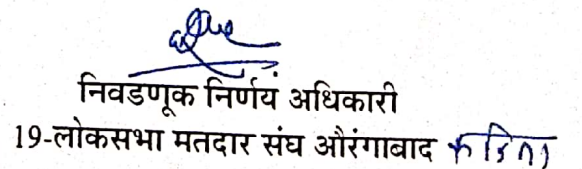 निवडणूक निर्णय अधिकारी
19-लोकसभा मतदार संघ औरंगाबाद